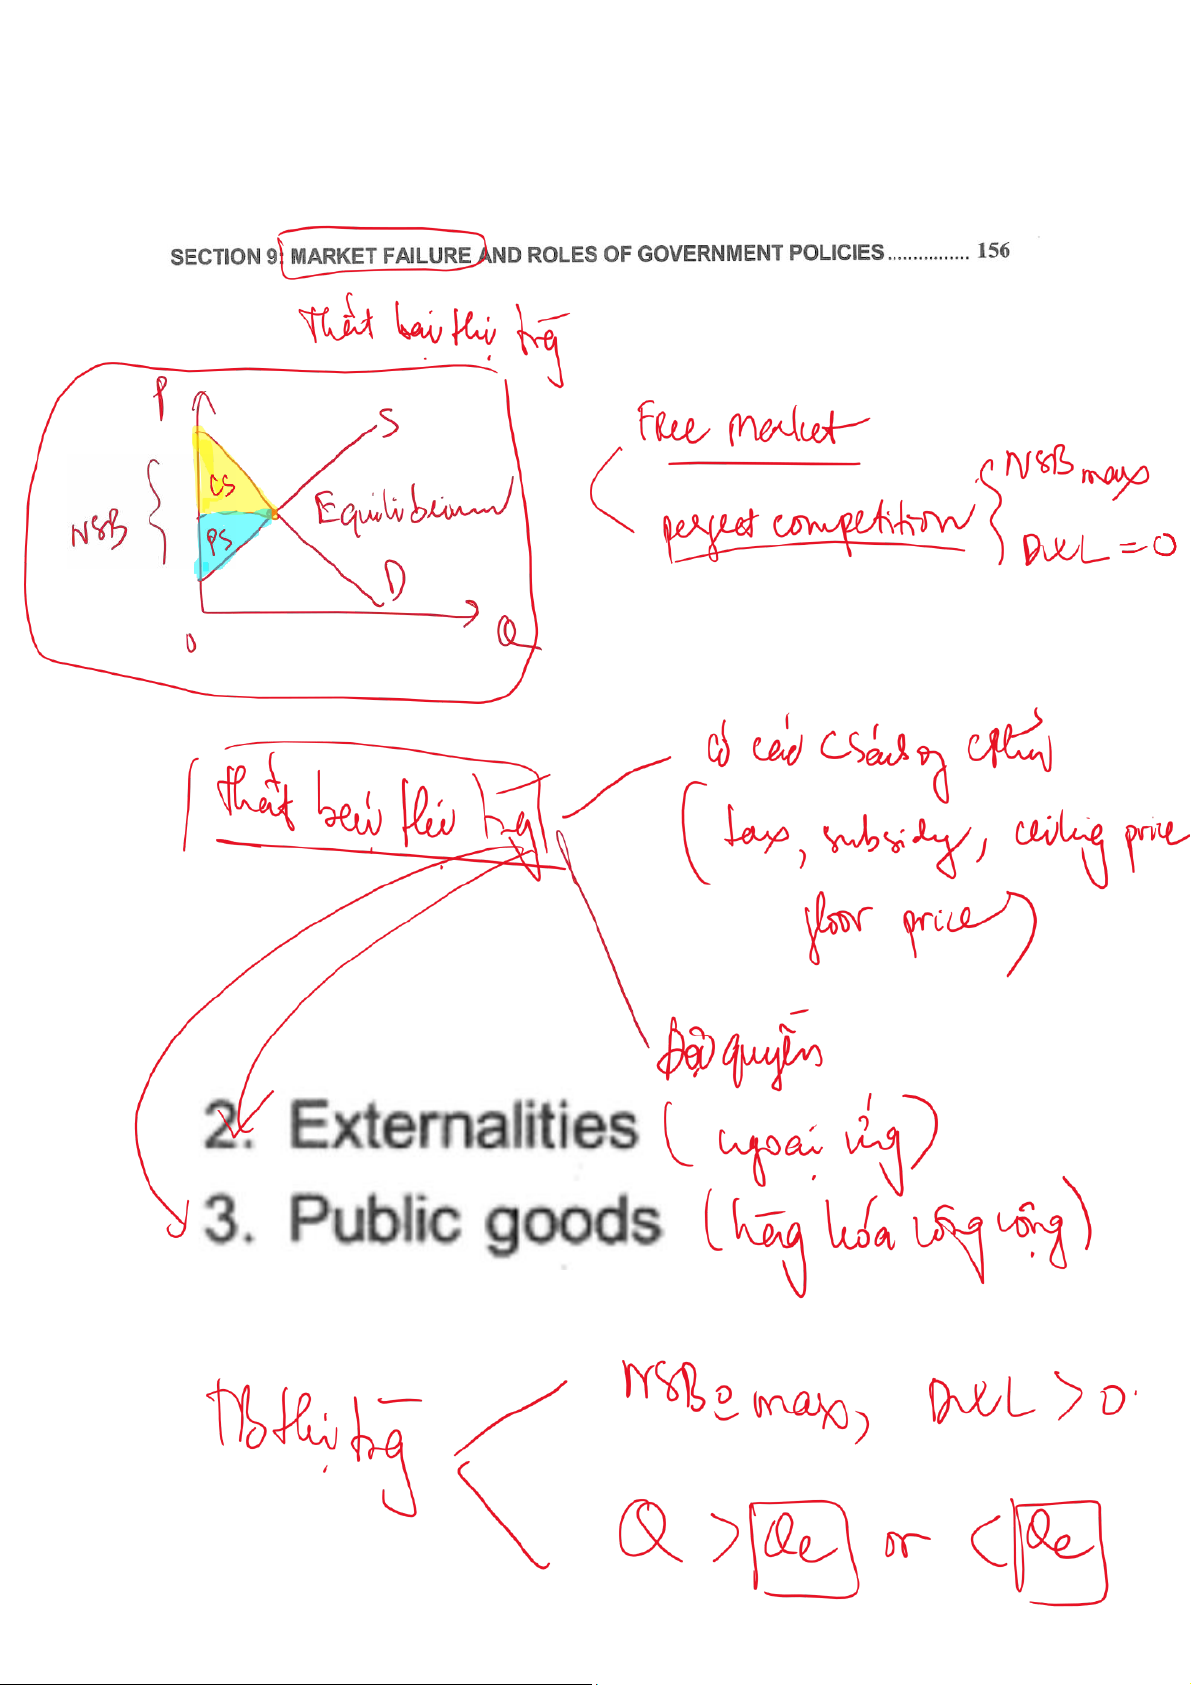 SECTION 9: MARKET FAILURE AND ROLES OF GOVERNMENT POLICIES................ 156
Thất bại thị trg
P
S
CS
NSB
PS
Equilibrium
D
0
Q
Free market
perfect competition
NSB max
DWL = 0
Thất bại thị trg
có các csách cphủ
(tax, subsidy, ceiling price
floor price)
Độc quyền
2. Externalities (ngoại ứng)
3. Public goods (hàng hóa công cộng)
TB thị trg
NSB max, DWL > 0
Q > Qe or < Qe